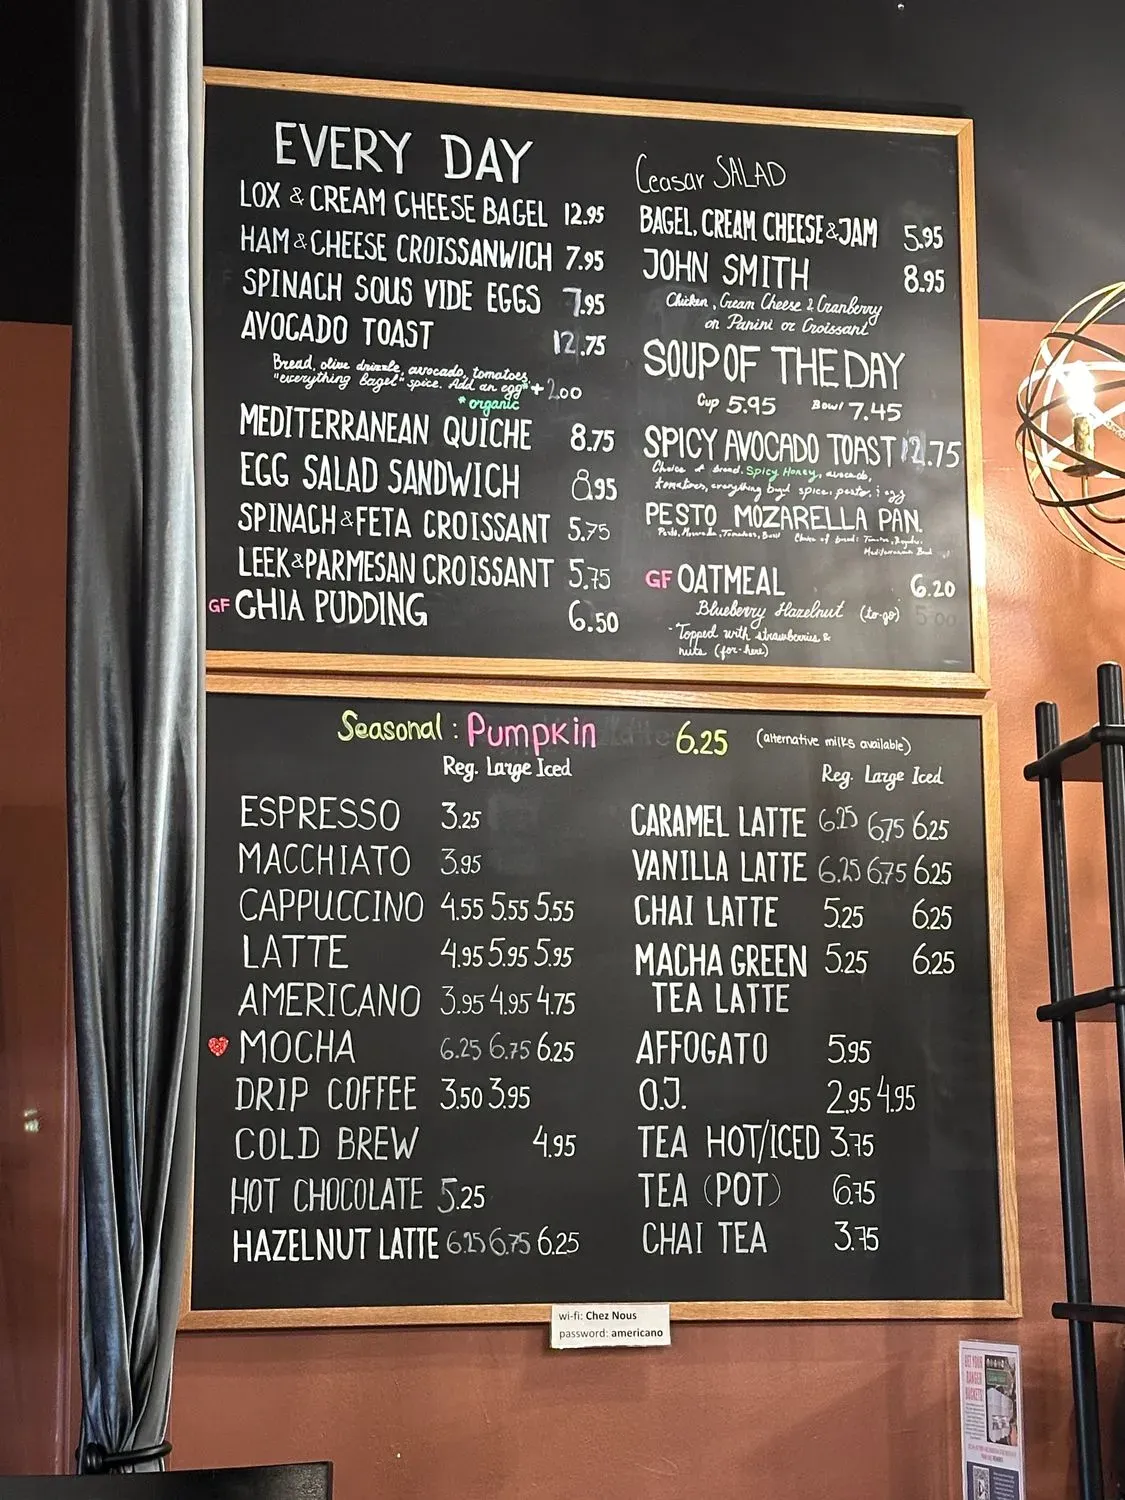 EVERY DAY
LOX & CREAM CHEESE BAGEL 12.95
HAM & CHEESE CROISSANWICH 7.95
SPINACH SOUS VIDE EGGS 7.95
AVOCADO TOAST 12.75
Bread, olive drizzle, avocado, tomatoes,
"everything bagel" spice. Add an egg* + 2.00
* organic
MEDITERRANEAN QUICHE 8.75
EGG SALAD SANDWICH 8.95
SPINACH & FETA CROISSANT 5.75
LEEK & PARMESAN CROISSANT 5.75
GF CHIA PUDDING 6.50
Ceasar SALAD
BAGEL, CREAM CHEESE & JAM 5.95
JOHN SMITH 8.95
Chicken, Cream Cheese & Cranberry
on Panini or Croissant
SOUP OF THE DAY
Cup 5.95 Bowl 7.45
SPICY AVOCADO TOAST 12.75
Choice of bread, Spicy Honey, avocado,
tomatoes, everything bagel spice, pesto, & egg
PESTO MOZARELLA PAN.
Choice of bread:
Mediterranean
GF OATMEAL 6.20
Blueberry Hazelnut (to-go) 5.00
- Topped with strawberries &
nuts (for-here)
Seasonal : Pumpkin 6.25 (alternative milks available)
Reg. Large Iced
ESPRESSO 3.25
MACCHIATO 3.95
CAPPUCCINO 4.55 5.55 5.55
LATTE 4.95 5.95 5.95
AMERICANO 3.95 4.95 4.75
MOCHA 6.25 6.75 6.25
DRIP COFFEE 3.50 3.95
COLD BREW 4.95
HOT CHOCOLATE 5.25
HAZELNUT LATTE 6.25 6.75 6.25
Reg. Large Iced
CARAMEL LATTE 6.25 6.75 6.25
VANILLA LATTE 6.25 6.75 6.25
CHAI LATTE 5.25 6.25
MACHA GREEN 5.25 6.25
TEA LATTE
AFFOGATO 5.95
O.J. 2.95 4.95
TEA HOT/ICED 3.75
TEA (POT) 6.75
CHAI TEA 3.75
wi-fi: Chez Nous
password: americano
GET YOUR
RANGER
BUCKETS!